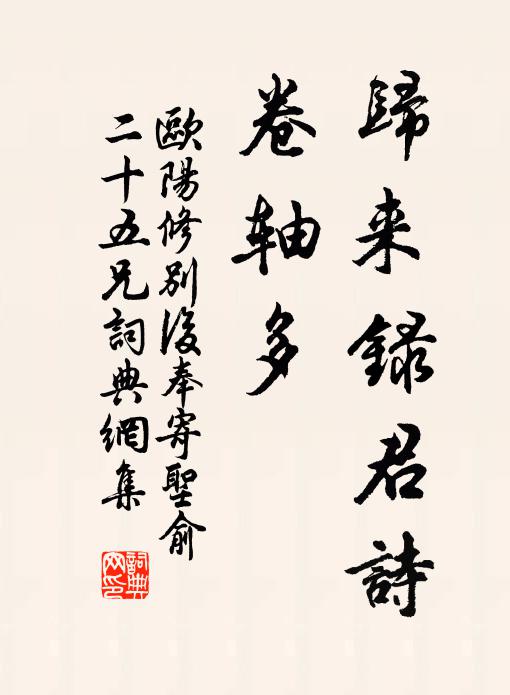 歸来録君詩
卷軸多
歐陽修別後奉寄聖俞
二十五兄詞典網集
詞典网印